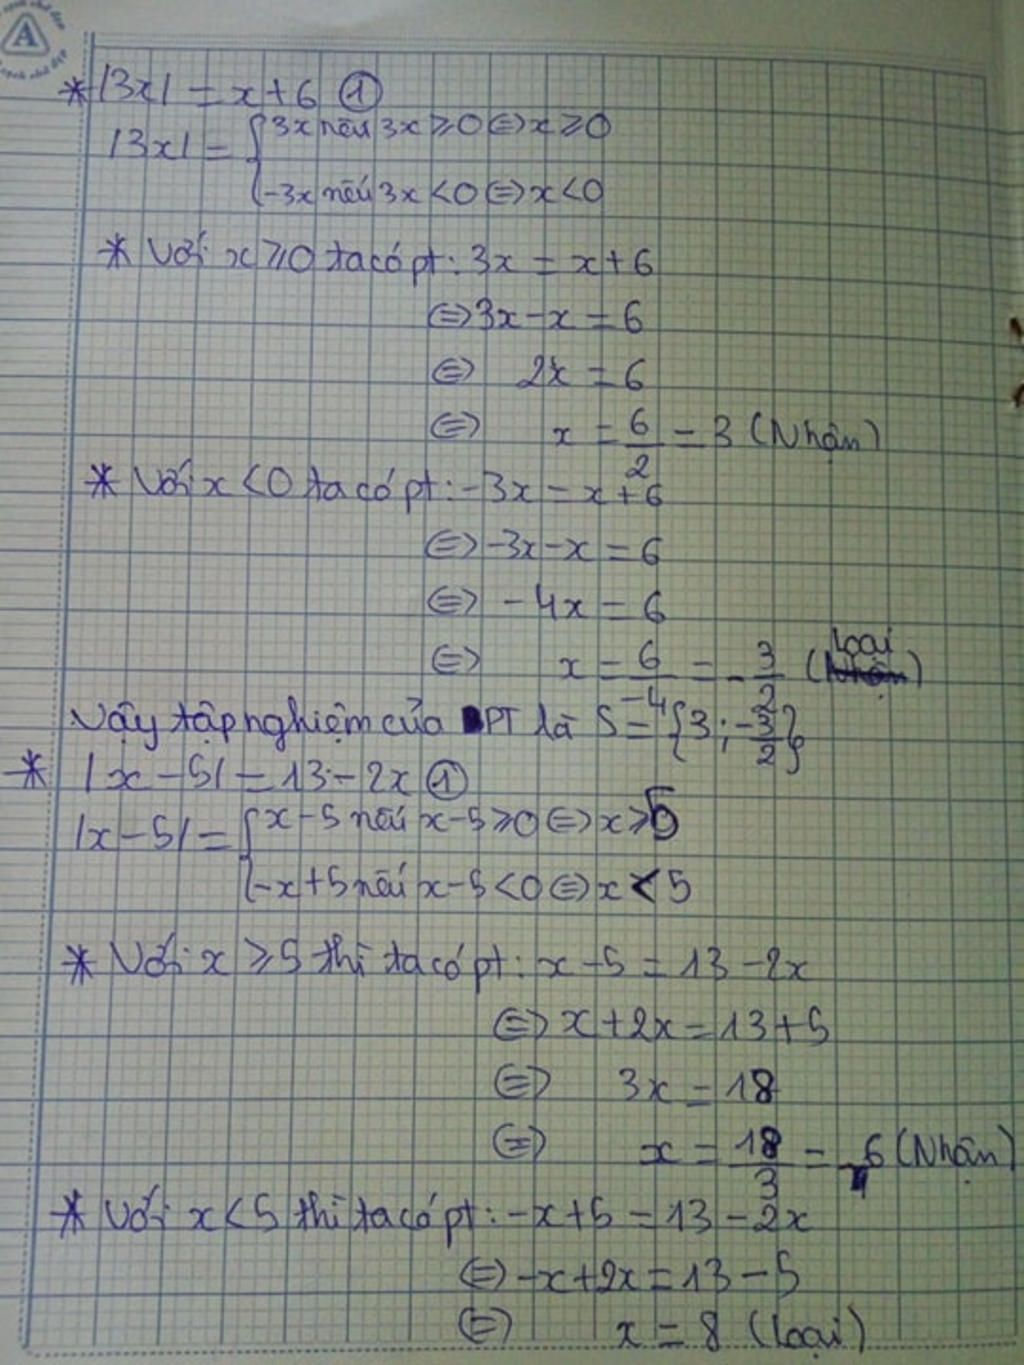 * |3x| = x + 6 ①
|3x| = { 3x nếu 3x ≥ 0 ⇔ x ≥ 0
-3x nếu 3x < 0 ⇔ x < 0
* Với x ≥ 0 ta có pt: 3x = x + 6
⇔ 3x - x = 6
⇔ 2x = 6
⇔ x = 6/2 = 3 (Nhận)
* Với x < 0 ta có pt: -3x = x + 6
⇔ -3x - x = 6
⇔ -4x = 6
⇔ x = 6/-4 = -3/2 (Loại)
Vậy tập nghiệm của PT là S = {3; -3/2}
* |x - 5| = 13 - 2x ①
|x - 5| = { x - 5 nếu x - 5 ≥ 0 ⇔ x ≥ 5
-x + 5 nếu x - 5 < 0 ⇔ x < 5
* Với x ≥ 5 thì ta có pt: x - 5 = 13 - 2x
⇔ x + 2x = 13 + 5
⇔ 3x = 18
⇔ x = 18/3 = 6 (Nhận)
* Với x < 5 thì ta có pt: -x + 5 = 13 - 2x
⇔ -x + 2x = 13 - 5
⇔ x = 8 (Loại)